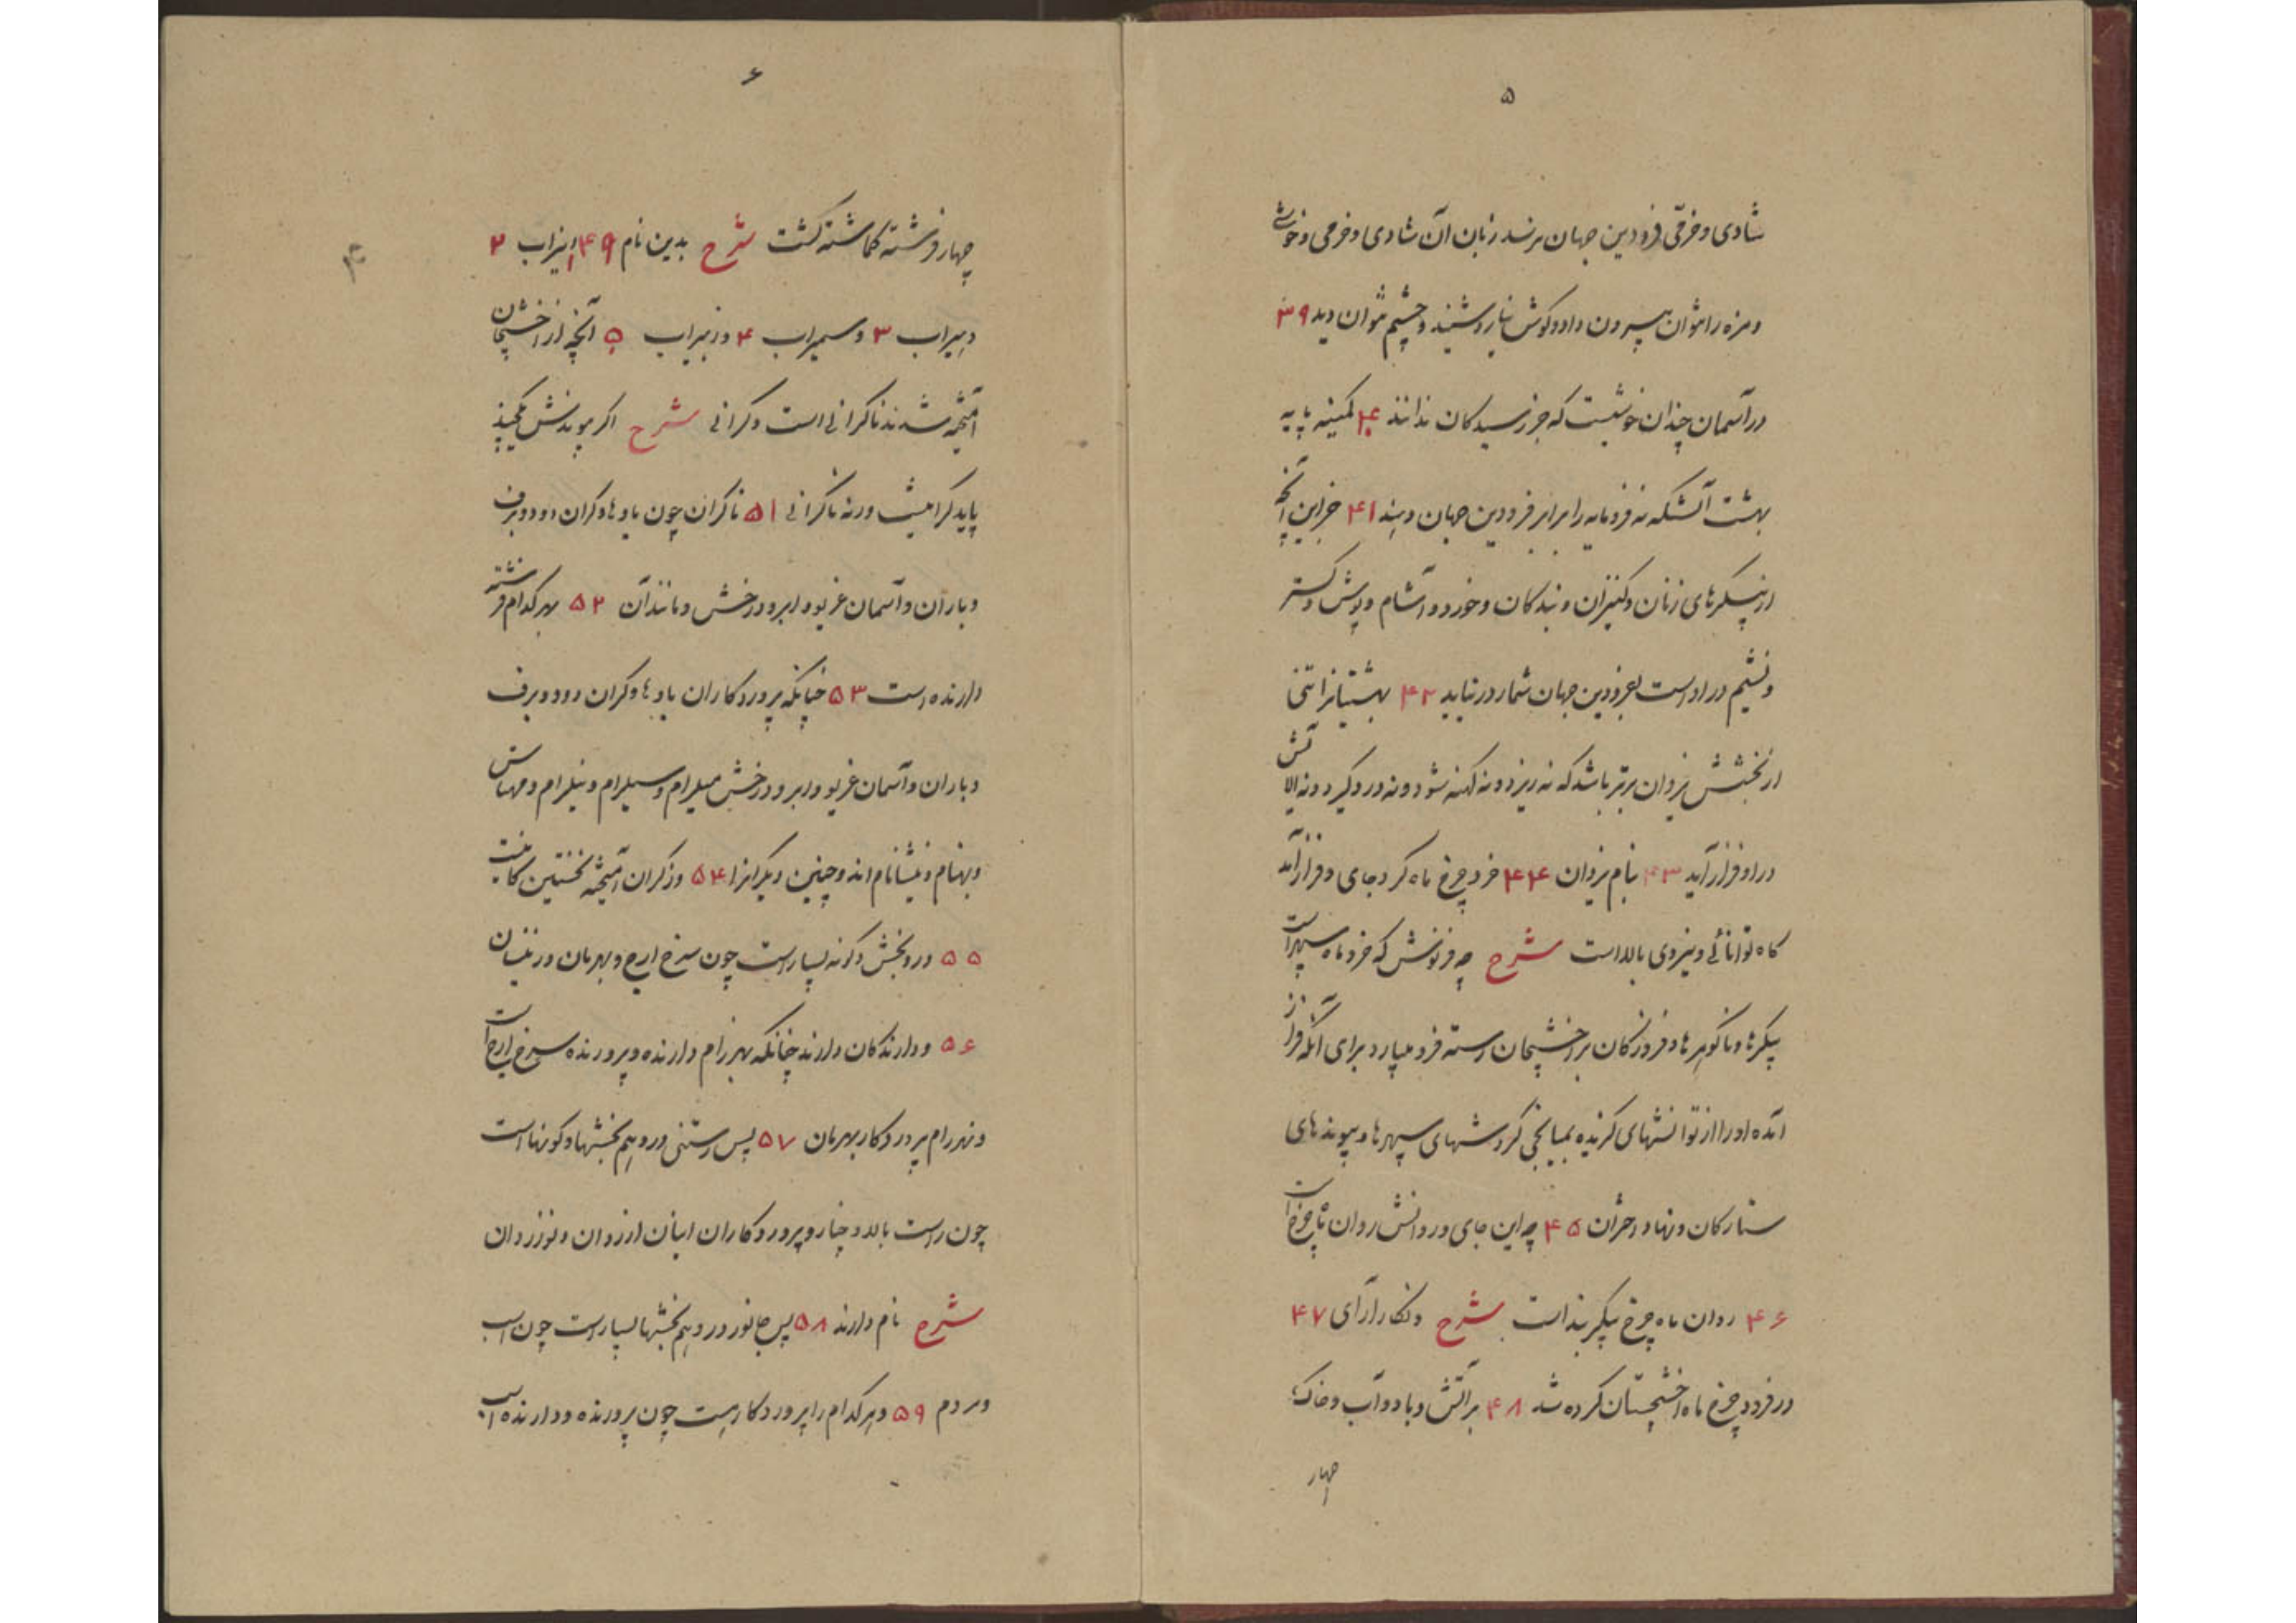 ۵
شادی و خرمی فرودین جهان برند زبان آن شادی و خرمی و خوشی
و مزه را نتوان بیرون داد و گوش نیارد شنید و چشم نتوان دید ۳۹
در آسمان چندان خوشیست که جز رسیدگان ندانند ۴۰ کمینه پایه
بهشت آنست که فرومایه را برابر فرودین جهان دهند ۴۱ جز این آنچه
از پیکرهای زنان و کنیزان و بندگان و خورد و آشام و پوشش و گستر
و نشیم در او است بفرودین جهان شمار در نیاید ۴۲ بهشتیانرا تنی
از بخشش یزدان برتر باشد که نه ریزد و نه کهنه شود و نه درد گیرد و نه آلایش
در او فراز آید ۴۳ بنام یزدان ۴۴ خرد چرخ ماه کرد جای و فرازآمد
گاه توانائی و نیروی بالا است شرح چه فرنوش که خرد ماه سپهر است
پیکرها و ناگوهرها و فروزگان بر اخشیجان رسته فرو میبارد برای آنکه فراز
آمده او را از توانشهای گزیده بمیانجی گردشهای سپهرها و پیوندهای
ستارگان و نهاد اختران ۴۵ چه این جای ورد دانش روان چرخ است
۴۶ روان ماه چرخ پیکر بند است شرح و نگار آرای ۴۷
در فرود چرخ ماه اخشیجستان کرده شد ۴۸ بر آتش و باد و آب و خاک
چهار
۶
چهار فرشته گماشته گشت شرح بدین نام ۴۹ انیراب ۲
دهیراب ۳ و سمیراب ۴ و زمیراب ۵ آنچه از اخشیجان
آمیخته شدند ناگرانی است و گرانی شرح اگر پیوندش پیکی
پاید گرانیست ورنه ناگرانی ۵۱ ناگران چون بادها و گران دود و برف
و باران و آسمان غریو و ابر و درخش و مانند آن ۵۲ بهر کدام فرشته
دارنده است ۵۳ چنانکه پروردگاران بادها و گران دود و برف
و باران و آسمان غریو و ابر و درخش میلرام و سیلرام و نیلرام و مهتاش
و بهنام و نیشانام اند و چنین دیگرانرا ۵۴ و ز گران آمیخته نخستین کانیست
۵۵ درو بخش و گونه بسیار است چون سرخ ارج و بهرمان و در نیسان
۵۶ و دارندگان دارند چنانکه بهرزام دارنده و پرورنده سرخ ارج است
و نهررام پروردگار بهرمان ۵۷ پس رستنی درو هم بخشها و گونها است
چون راست بالا و چنار و پروردگاران اینان ازروان و نوزروان
شرح نام دارند ۵۸ پس جانور درو هم بخشها بسیار است چون اسب
و مردم ۵۹ و هر کدام را پروردگاریست چون پرورنده و دارنده اسب